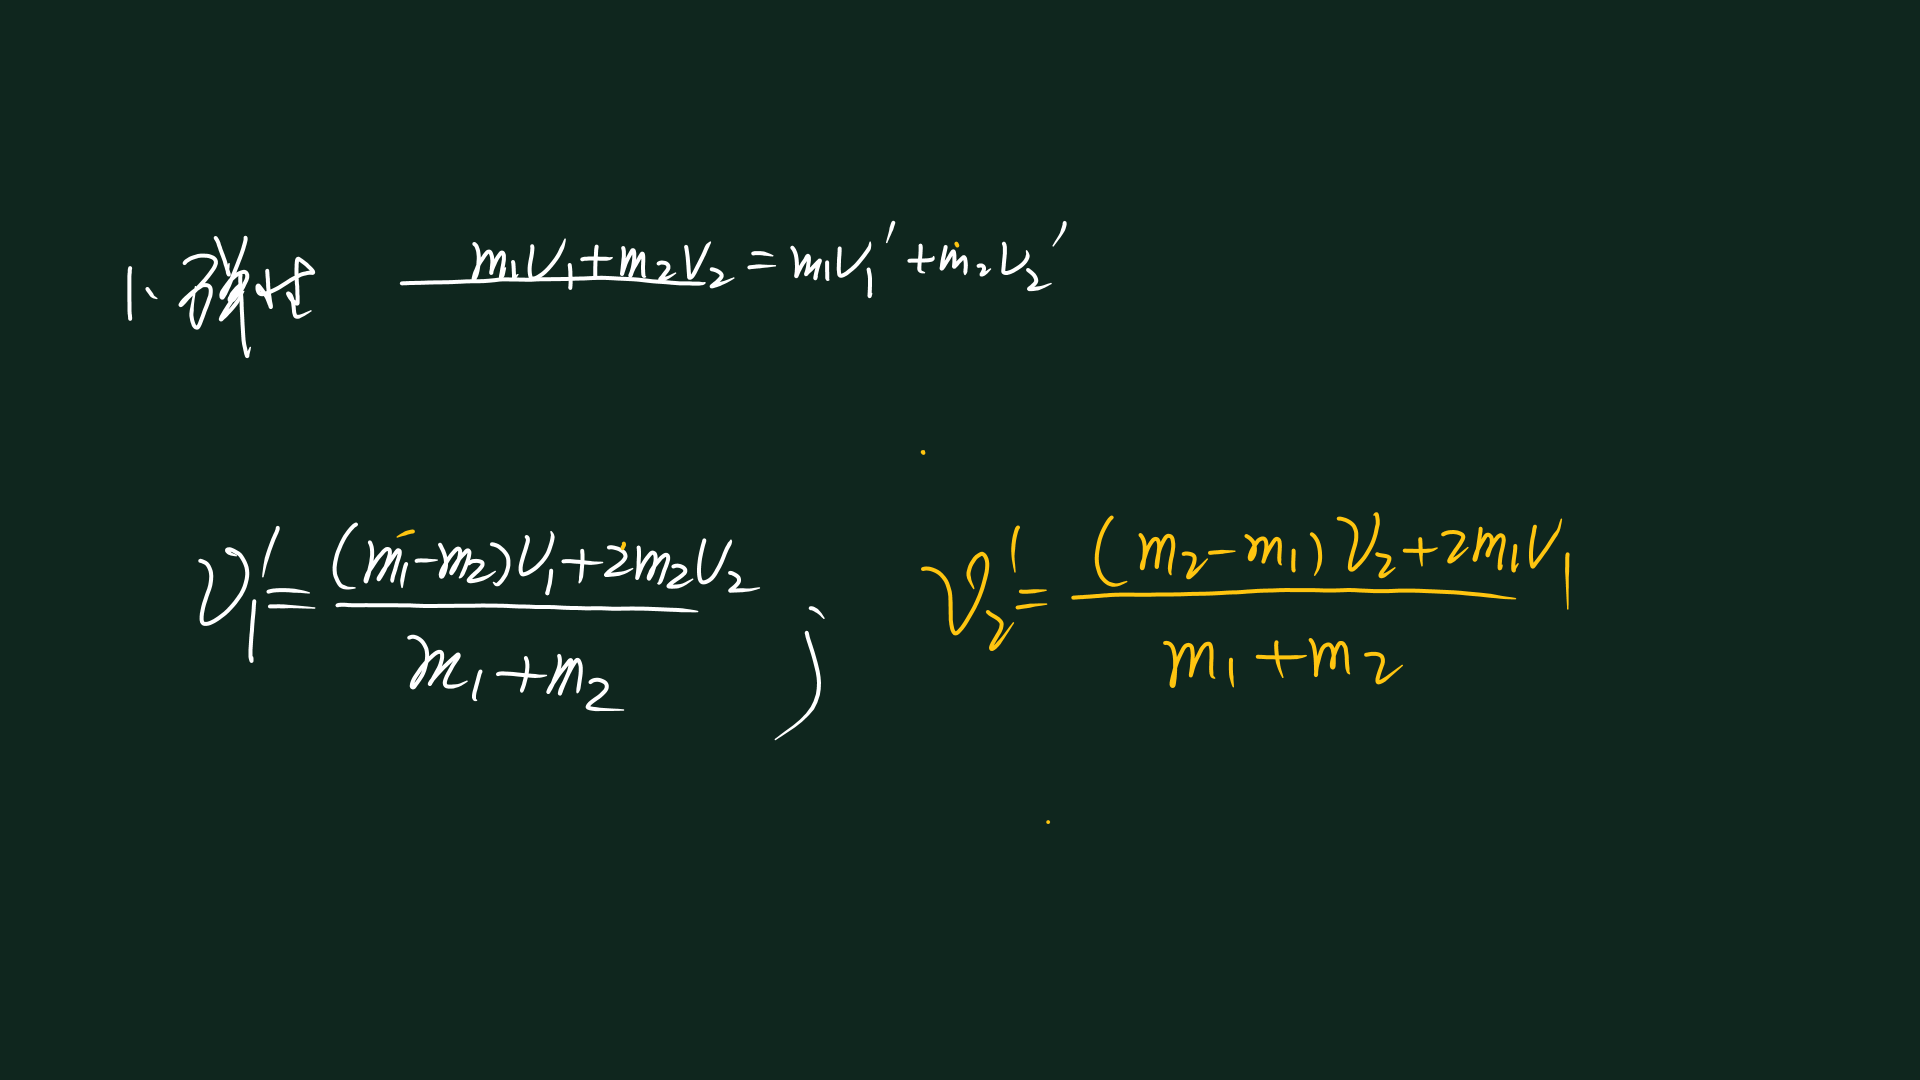 1、弹性 m₁v₁+m₂v₂=m₁v₁′+m₂v₂′
v₁′=((m₁-m₂)v₁+2m₂v₂)/(m₁+m₂) ; v₂′=((m₂-m₁)v₂+2m₁v₁)/(m₁+m₂)